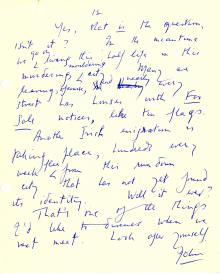 12
Yes, that is the question,
isn't it? In the meantime
we go on living this half life in this
murdering, murdered city. Many are
leaving, of course, and nearly every
street has houses with For
Sale notices, like tin flags.
Another Irish emigration is
taking place, hundreds every
week from this run down
city that has not yet found
its identity. Will it ever?
That's one of the things
I'd like to discuss when we
next meet. Look after yourself
John